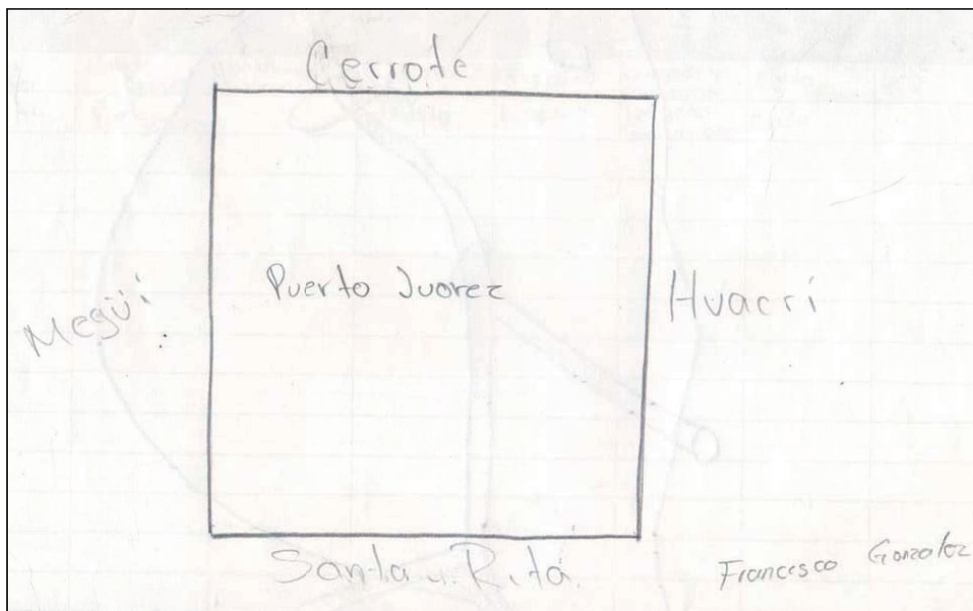 Cerrote
Megüi
Puerto Juarez
Huacrí
Santa Rita
Francesco Gonzalez